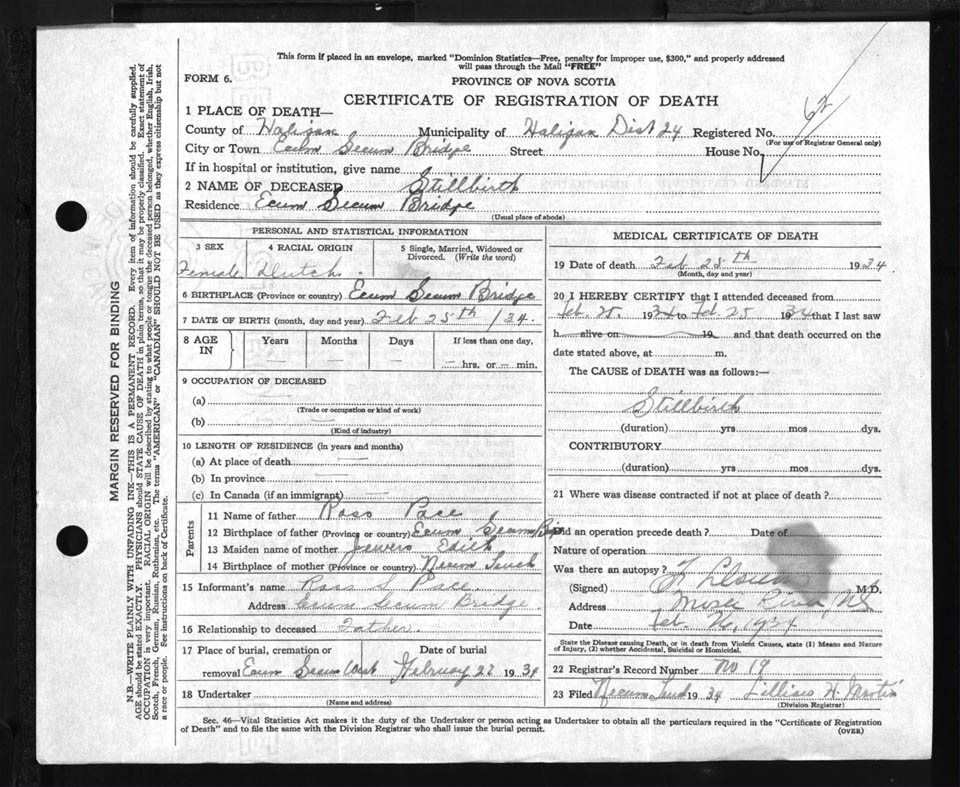 This form if placed in an envelope, marked "Dominion Statistics—Free, penalty for improper use, $300," and properly addressed
will pass through the Mail "FREE"
FORM 6.
PROVINCE OF NOVA SCOTIA
CERTIFICATE OF REGISTRATION OF DEATH
62
1 PLACE OF DEATH—
County of Halifax Municipality of Halifax Dist 24 Registered No.
(For use of Registrar General only)
City or Town Ecum Secum Bridge Street House No.
If in hospital or institution, give name
2 NAME OF DECEASED Stillbirth
Residence Ecum Secum Bridge
(Usual place of abode)
PERSONAL AND STATISTICAL INFORMATION
3 SEX 4 RACIAL ORIGIN 5 Single, Married, Widowed or
Divorced. (Write the word)
Female Dutch
6 BIRTHPLACE (Province or country) Ecum Secum Bridge
7 DATE OF BIRTH (month, day and year) Feb 25th /34.
8 AGE IN Years Months Days If less than one day,
— — — — hrs. or — min.
9 OCCUPATION OF DECEASED
(a)
(Trade or occupation or kind of work)
(b)
(Kind of industry)
10 LENGTH OF RESIDENCE (in years and months)
(a) At place of death
(b) In province
(c) In Canada (if an immigrant)
Parents
11 Name of father Ross Pace
12 Birthplace of father (Province or country) Ecum Secum Bge
13 Maiden name of mother Jewers Edith
14 Birthplace of mother (Province or country) Necum Teuch
15 Informant's name Ross L Pace.
Address Ecum Secum Bridge.
16 Relationship to deceased Father.
17 Place of burial, cremation or Date of burial
removal Ecum Secum West February 27 1934
18 Undertaker
(Name and address)
MEDICAL CERTIFICATE OF DEATH
19 Date of death Feb 25th 1934.
(Month, day and year)
20 I HEREBY CERTIFY that I attended deceased from
Feb. 25 1934 to Feb. 25 1934 that I last saw
h alive on 19 and that death occurred on the
date stated above, at m.
The CAUSE of DEATH was as follows:—
Stillbirth
(duration) yrs mos dys.
CONTRIBUTORY
(duration) yrs mos dys.
21 Where was disease contracted if not at place of death?
Did an operation precede death? Date of
Nature of operation
Was there an autopsy?
(Signed) M.D.
Address Moser River, NS
Date Feb. 26, 1934
State the Disease causing Death, or in death from Violent Causes, state (1) Means and Nature
of Injury, (2) whether Accidental, Suicidal or Homicidal.
22 Registrar's Record Number No 19
23 Filed Necum Teuch 1934 Lillian H. Martin
(Division Registrar)
Sec. 46—Vital Statistics Act makes it the duty of the Undertaker or person acting as Undertaker to obtain all the particulars required in the "Certificate of Registration
of Death" and to file the same with the Division Registrar who shall issue the burial permit.
(OVER)
MARGIN RESERVED FOR BINDING
N.B.—WRITE PLAINLY WITH UNFADING INK—THIS IS A PERMANENT RECORD. Every item of information should be carefully supplied.
AGE should be stated EXACTLY. PHYSICIANS should STATE CAUSE OF DEATH in plain terms, so that it may be properly classified. Exact statement of
OCCUPATION is very important. RACIAL ORIGIN will be described by stating to what people or tongue the deceased person belonged, whether English, Irish,
Scotch, French, German, Russian, Ruthenian, etc. The terms "AMERICAN" or "CANADIAN" SHOULD NOT BE USED as they express citizenship but not
a race or people. See instructions on back of Certificate.